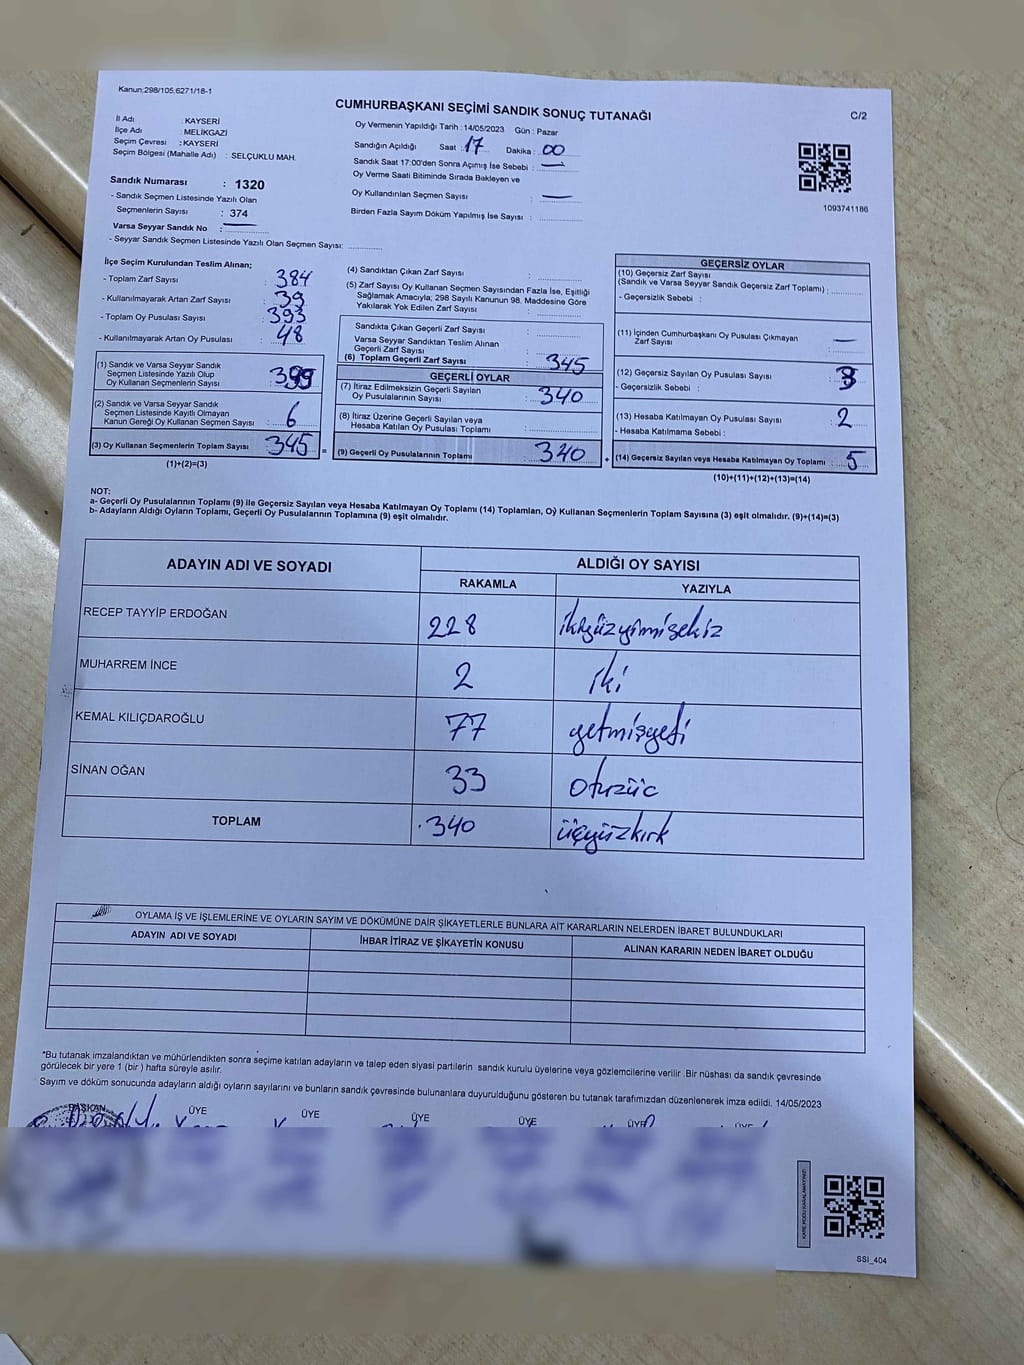 Kanun:298/105;6271/18-1
CUMHURBAŞKANI SEÇİMİ SANDIK SONUÇ TUTANAĞI
C/2
İl Adı : KAYSERİ
İlçe Adı : MELİKGAZİ
Seçim Çevresi : KAYSERİ
Seçim Bölgesi (Mahalle Adı) : SELÇUKLU MAH.
Sandık Numarası : 1320
- Sandık Seçmen Listesinde Yazılı Olan
Seçmenlerin Sayısı : 374
Varsa Seyyar Sandık No :
- Seyyar Sandık Seçmen Listesinde Yazılı Olan Seçmen Sayısı:
Oy Vermenin Yapıldığı Tarih : 14/05/2023 Gün : Pazar
Sandığın Açıldığı Saat : 17 Dakika : 00
Sandık Saat 17:00'den Sonra Açımış İse Sebebi :
Oy Verme Saati Bitiminde Sırada Bekleyen ve
Oy Kullandırılan Seçmen Sayısı :
Birden Fazla Sayım Döküm Yapılmış İse Sayısı :
1093741186
İlçe Seçim Kurulundan Teslim Alınan;
- Toplam Zarf Sayısı : 384
- Kullanılmayarak Artan Zarf Sayısı : 39
- Toplam Oy Pusulası Sayısı : 393
- Kullanılmayarak Artan Oy Pusulası : 48
(1) Sandık ve Varsa Seyyar Sandık
Seçmen Listesinde Yazılı Olup
Oy Kullanan Seçmenlerin Sayısı :
(2) Sandık ve Varsa Seyyar Sandık
Seçmen Listesinde Kayıtlı Olmayan
Kanun Gereği Oy Kullanan Seçmen Sayısı : 6
(3) Oy Kullanan Seçmenlerin Toplam Sayısı : 345
(1)+(2)=(3)
(4) Sandıktan Çıkan Zarf Sayısı :
(5) Zarf Sayısı Oy Kullanan Seçmen Sayısından Fazla İse, Eşitliği
Sağlamak Amacıyla; 298 Sayılı Kanunun 98. Maddesine Göre
Yakılarak Yok Edilen Zarf Sayısı :
Sandıkta Çıkan Geçerli Zarf Sayısı :
Varsa Seyyar Sandıktan Teslim Alınan
Geçerli Zarf Sayısı :
(6) Toplam Geçerli Zarf Sayısı : 345
GEÇERLİ OYLAR
(7) İtiraz Edilmeksizin Geçerli Sayılan
Oy Pusulalarının Sayısı : 340
(8) İtiraz Üzerine Geçerli Sayılan veya
Hesaba Katılan Oy Pusulası Toplamı :
(9) Geçerli Oy Pusulalarının Toplamı : 340
GEÇERSİZ OYLAR
(10) Geçersiz Zarf Sayısı
(Sandık ve Varsa Seyyar Sandık Geçersiz Zarf Toplamı) :
- Geçersizlik Sebebi :
(11) İçinden Cumhurbaşkanı Oy Pusulası Çıkmayan
Zarf Sayısı :
(12) Geçersiz Sayılan Oy Pusulası Sayısı : 3
- Geçersizlik Sebebi :
(13) Hesaba Katılmayan Oy Pusulası Sayısı : 2
- Hesaba Katılmama Sebebi :
(14) Geçersiz Sayılan veya Hesaba Katılmayan Oy Toplamı : 5
(10)+(11)+(12)+(13)=(14)
NOT:
a- Geçerli Oy Pusulalarının Toplamı (9) ile Geçersiz Sayılan veya Hesaba Katılmayan Oy Toplamı (14) Toplamları, Oy Kullanan Seçmenlerin Toplam Sayısına (3) eşit olmalıdır. (9)+(14)=(3)
b- Adayların Aldığı Oyların Toplamı, Geçerli Oy Pusulalarının Toplamına (9) eşit olmalıdır.
ADAYIN ADI VE SOYADI ALDIĞI OY SAYISI
RAKAMLA YAZIYLA
RECEP TAYYİP ERDOĞAN 228 ikiyüzyirmisekiz
MUHARREM İNCE 2 iki
KEMAL KILIÇDAROĞLU 77 yetmişyedi
SİNAN OĞAN 33 otuzüç
TOPLAM 340 üçyüzkırk
OYLAMA İŞ VE İŞLEMLERİNE VE OYLARIN SAYIM VE DÖKÜMÜNE DAİR ŞİKAYETLERLE BUNLARA AİT KARARLARIN NELERDEN İBARET BULUNDUKLARI
ADAYIN ADI VE SOYADI İHBAR İTİRAZ VE ŞİKAYETİN KONUSU ALINAN KARARIN NEDEN İBARET OLDUĞU
*Bu tutanak imzalandıktan ve mühürlendikten sonra seçime katılan adayların ve talep eden siyasi partilerin sandık kurulu üyelerine veya gözlemcilerine verilir .Bir nüshası da sandık çevresinde
görülecek bir yere 1 (bir ) hafta süreyle asılır.
Sayım ve döküm sonucunda adayların aldığı oyların sayılarını ve bunların sandık çevresinde bulunanlara duyurulduğunu gösteren bu tutanak tarafımızdan düzenlenerek imza edildi. 14/05/2023
BAŞKAN ÜYE ÜYE ÜYE ÜYE ÜYE ÜYE
SSI_404